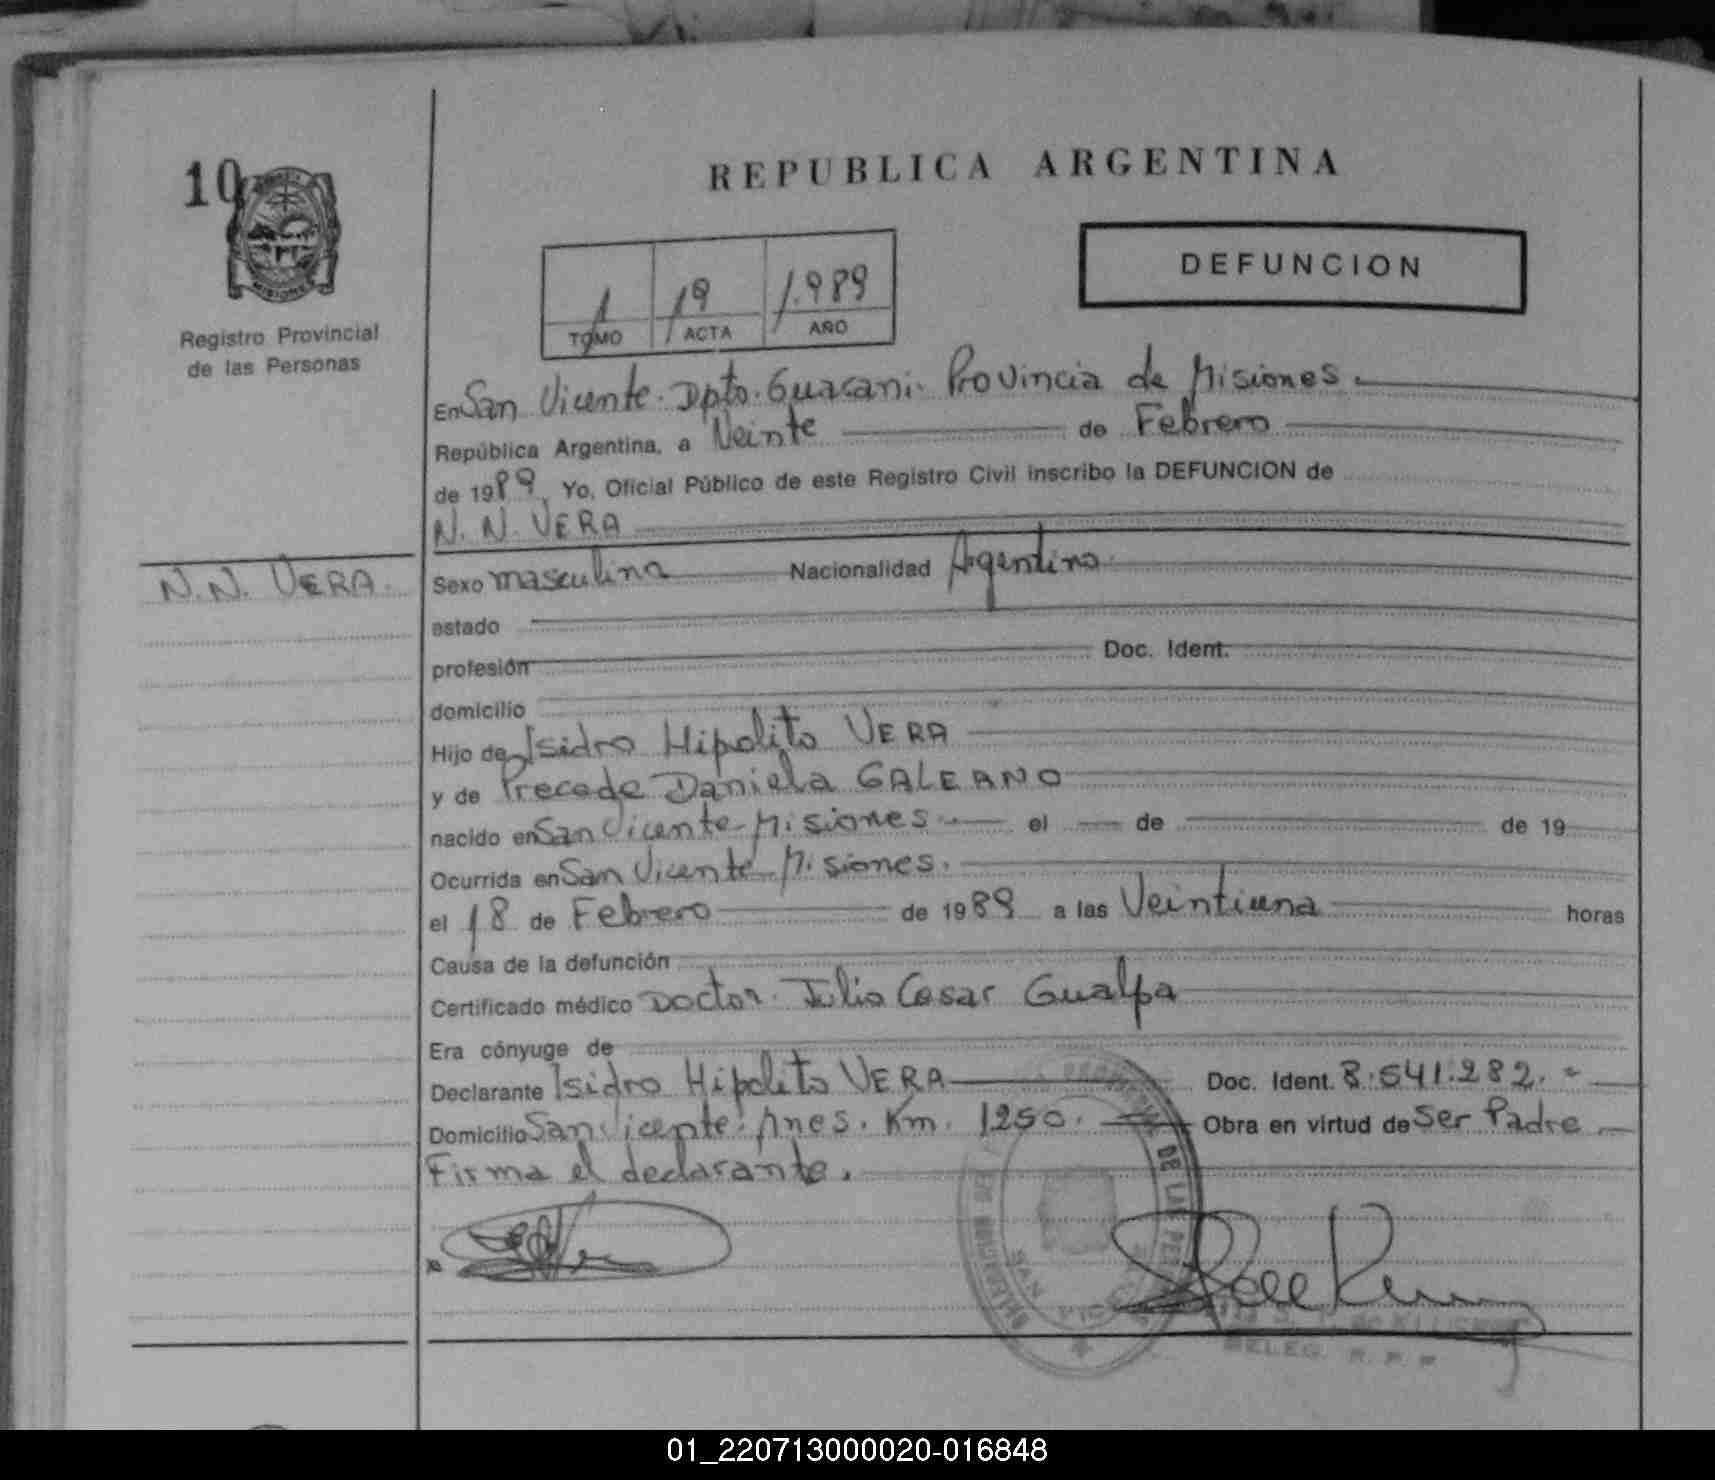 10
MISIONES
Registro Provincial
de las Personas
REPUBLICA ARGENTINA
DEFUNCION
1 19 1.989
TOMO ACTA AÑO
En San Vicente. Dpto. Guarani. Provincia de Misiones.
República Argentina, a Veinte de Febrero
de 1989, Yo, Oficial Público de este Registro Civil inscribo la DEFUNCION de
N. N. VERA
N. N. VERA.
Sexo masculino Nacionalidad Argentino.
estado
profesión Doc. Ident.
domicilio
Hijo de Isidro Hipolito VERA
y de Precede Daniela GALEANO
nacido en San Vicente-Misiones. el de de 19
Ocurrida en San Vicente Misiones.
el 18 de Febrero de 1989 a las Veintiuna horas
Causa de la defunción
Certificado médico Doctor. Julio Cesar Gualpa
Era cónyuge de
Declarante Isidro Hipolito VERA Doc. Ident. 8.541.282.
Domicilio San Vicente. Mnes. Km. 1250. Obra en virtud de Ser Padre
Firma el declarante.
DE LAS
SAN VIC
DELEG. R. P. P
01_220713000020-016848